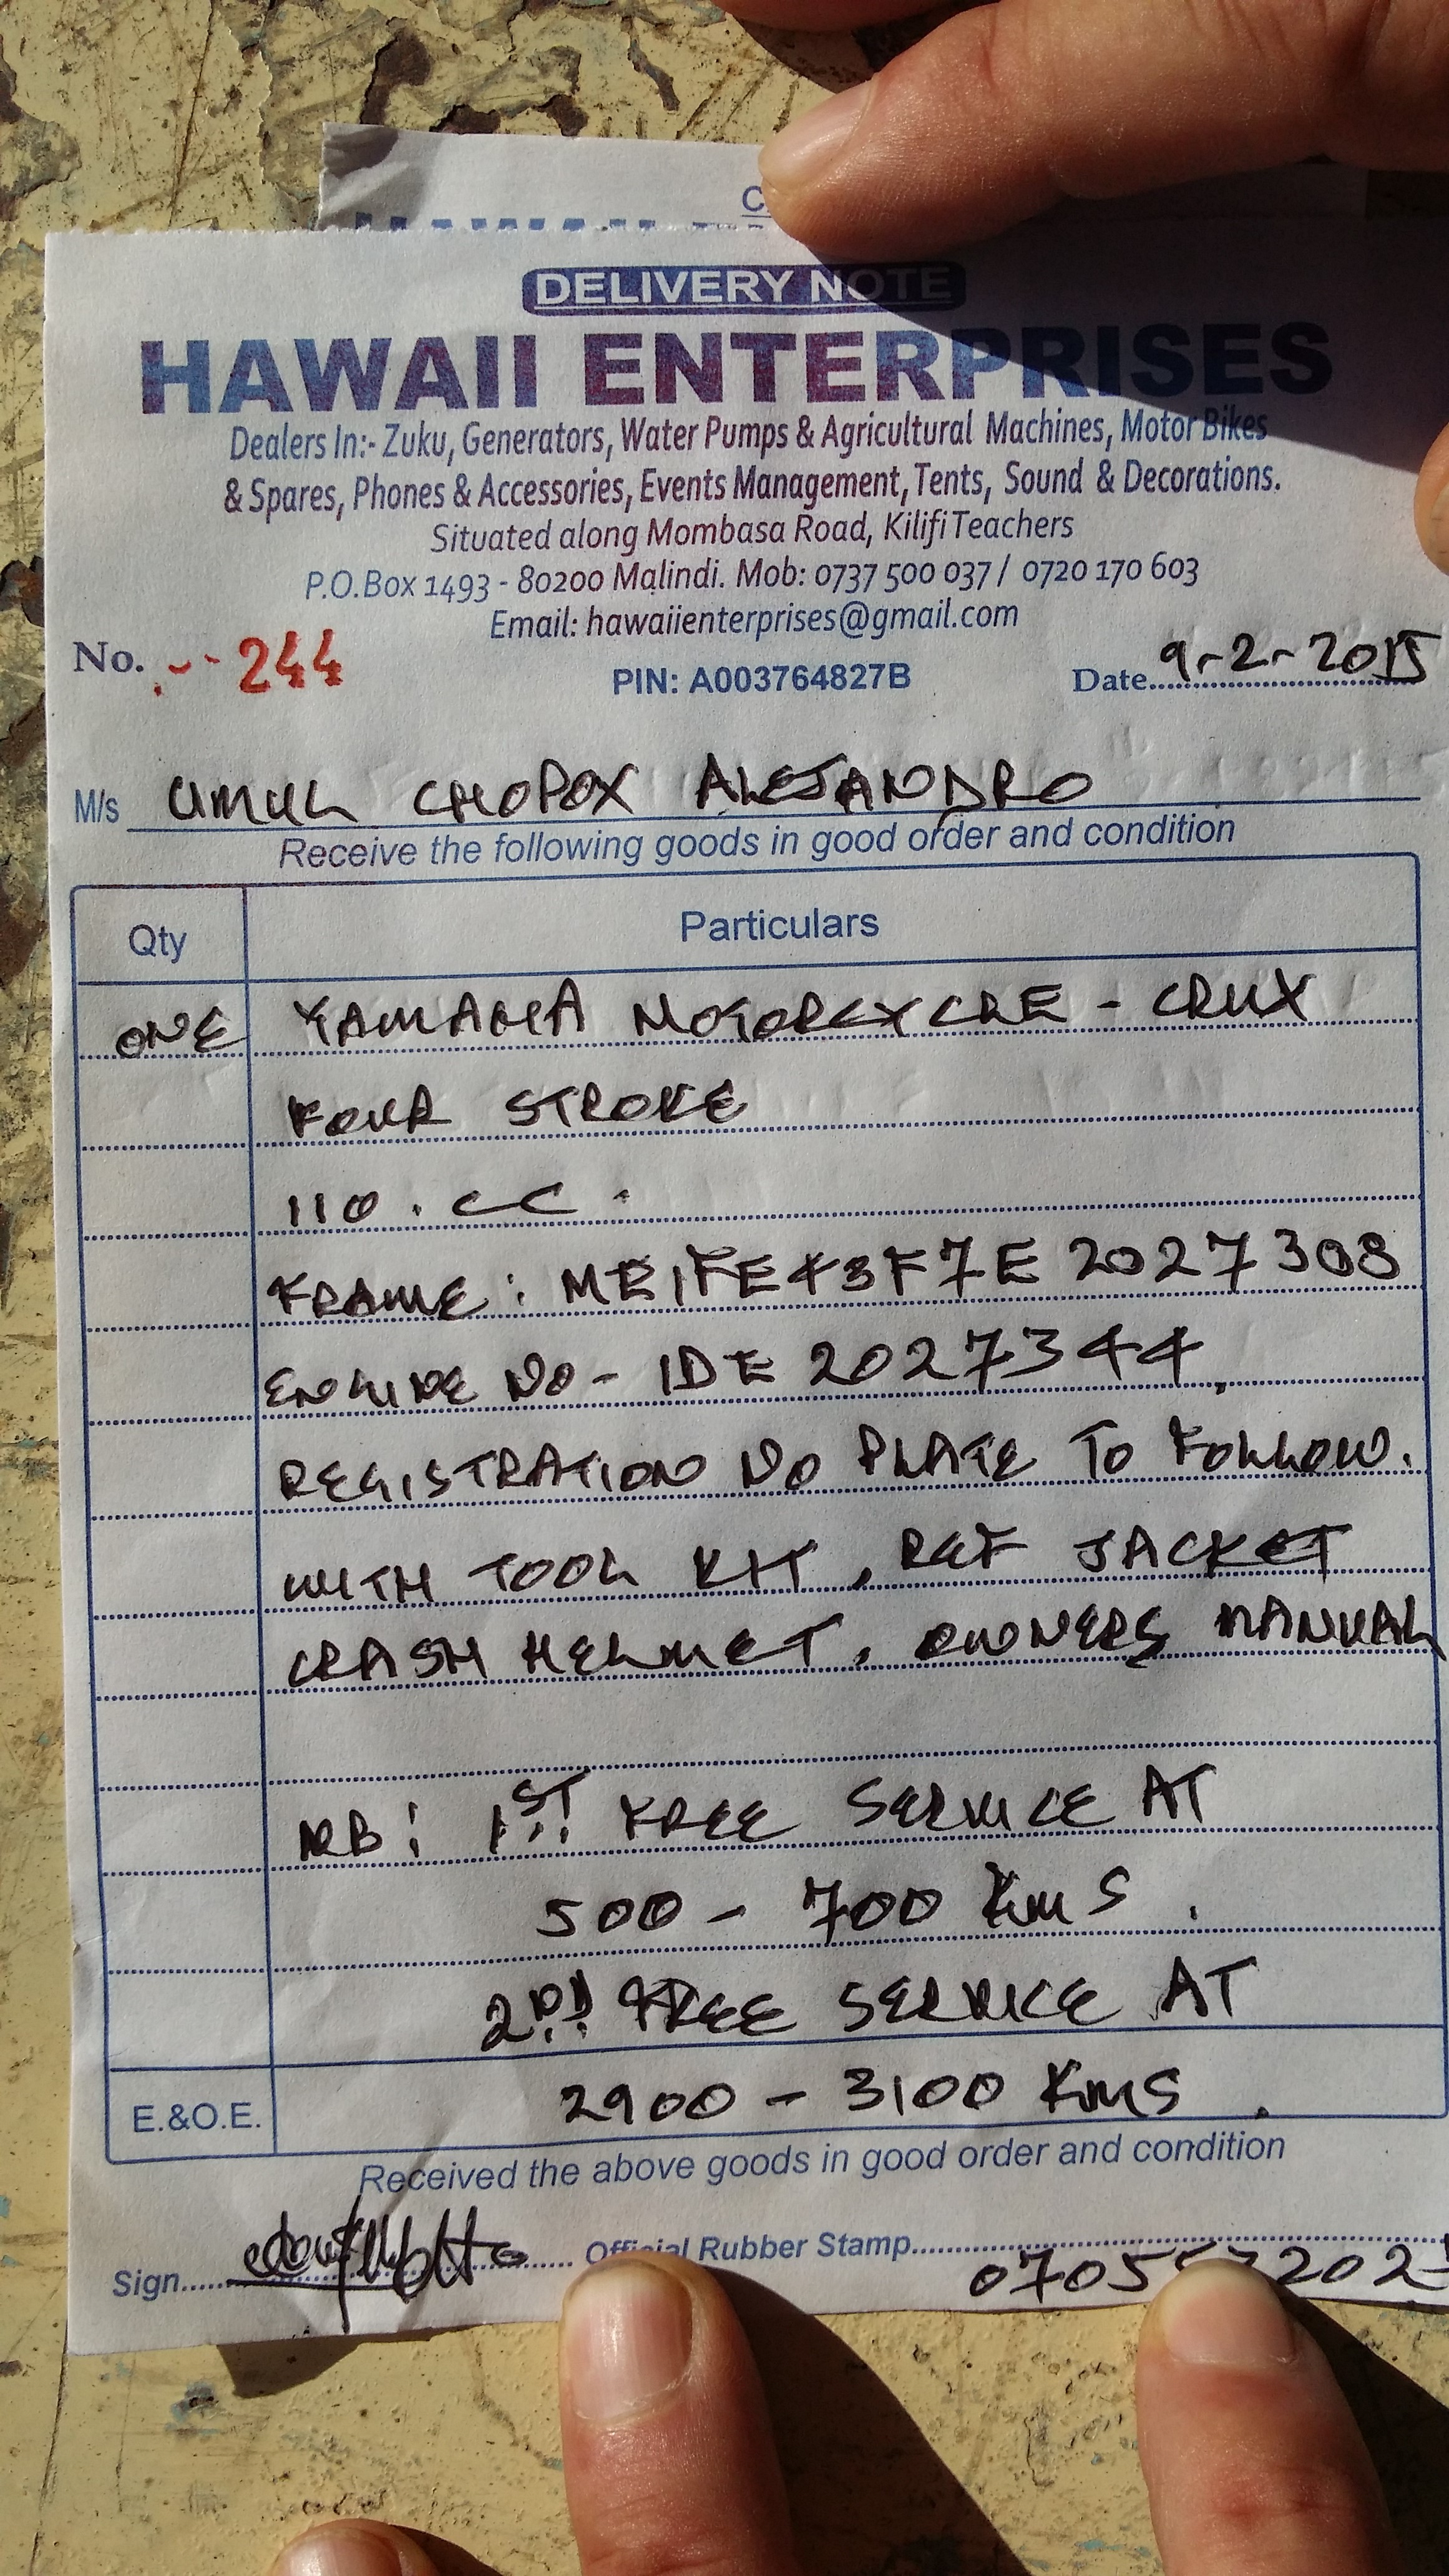 DELIVERY NOTE
HAWAII ENTERPRISES
Dealers In:- Zuku, Generators, Water Pumps & Agricultural Machines, Motor Bikes
& Spares, Phones & Accessories, Events Management, Tents, Sound & Decorations.
Situated along Mombasa Road, Kilifi Teachers
P.O.Box 1493 - 80200 Malindi. Mob: 0737 500 037 / 0720 170 603
Email: hawaiienterprises@gmail.com
No. 244
PIN: A003764827B
Date 9-2-2015
M/s UMUL CHOPOX ALEJANDRO
Receive the following goods in good order and condition
Qty Particulars
ONE YAMAHA MOTORCYCRE - CRUX
FOUR STROKE
110.CC.
FRAME: ME1FE43F7E 2027308
ENGINE NO - 1DE 2027344.
REGISTRATION NO PLATE TO FOLLOW.
WITH TOOL KIT, REF JACKET
CRASH HELMET, OWNERS MANUAL
NB: 1ST FREE SERVICE AT
500 - 700 Kms.
2ND FREE SERVICE AT
E.&O.E. 2900 - 3100 KMS.
Received the above goods in good order and condition
Sign Official Rubber Stamp